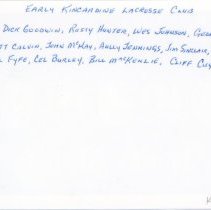 EARLY KINCARDINE LACROSSE CLUB
DICK GOODWIN, RUSTY HUNTER, WES JOHNSON,
TT CALVIN, JOHN MCKAY, ANDY JENNINGS, JIM SINCLAIR,
FYFE, CEL BURLEY, BILL MCKENZIE, CLIFF